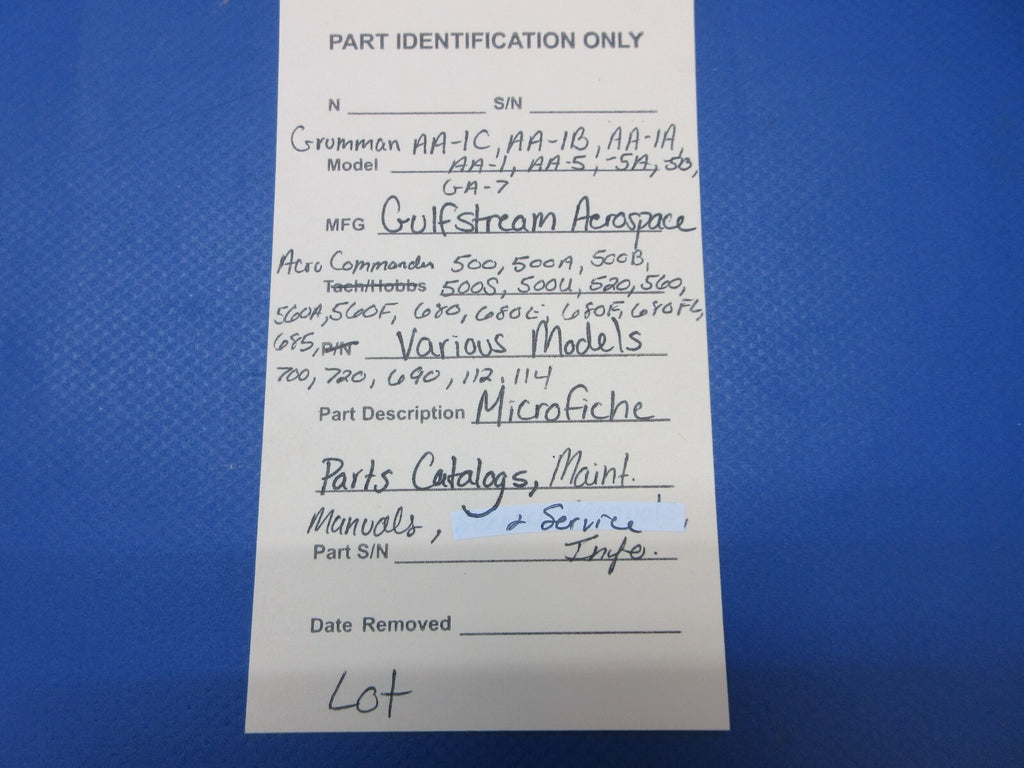 PART IDENTIFICATION ONLY
N S/N
Grumman AA-1C, AA-1B, AA-1A,
Model AA-1, AA-5, -5A, -5B,
GA-7
MFG Gulfstream Aerospace
Aero Commander 500, 500A, 500B,
Tach/Hobbs 500S, 500U, 520, 560,
560A, 560F, 680, 680E, 680F, 680FL,
685, P/N Various Models
700, 720, 690, 112, 114
Part Description Microfiche
Parts Catalogs, Maint.
Manuals, & Service
Part S/N Info.
Date Removed
Lot